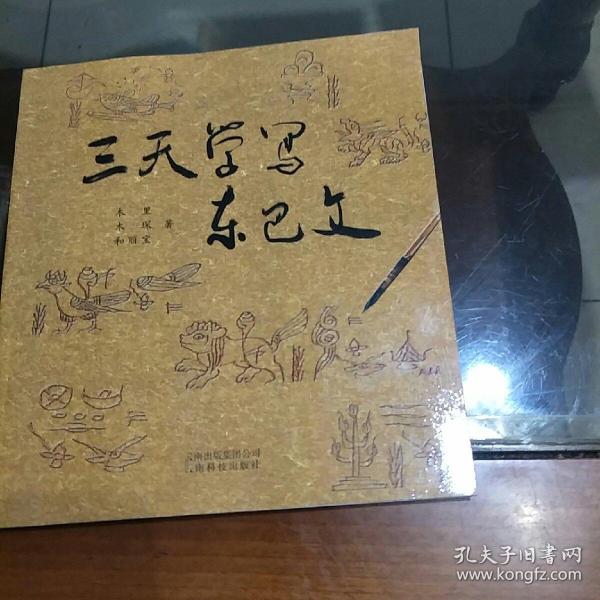 三天学写
东巴文
木里
木琛
和丽宝 著
云南出版集团公司
云南科技出版社
孔夫子旧书网
www.kongfz.com